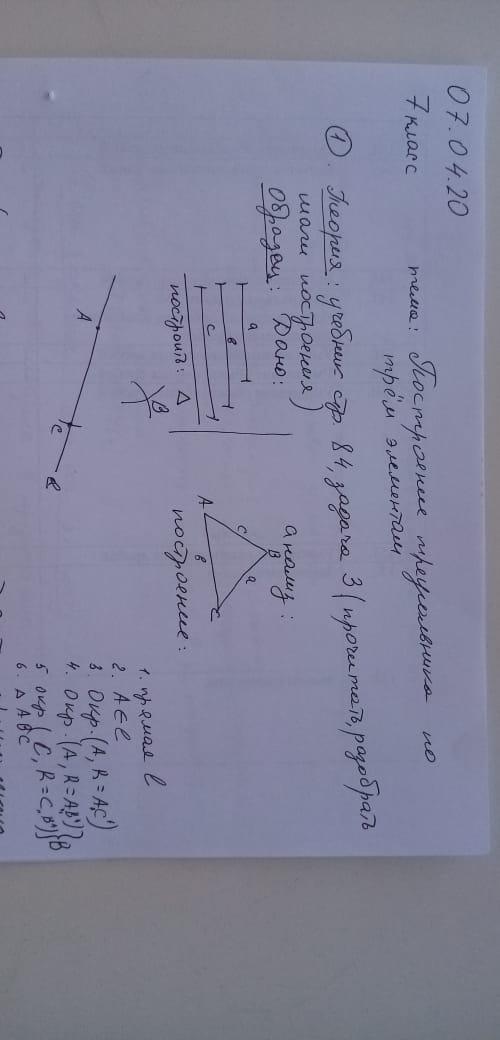 07.04.20
7 класс тема: Построение треугольника по
трём элементам
① Теория: учебник стр. 84, задача 3 (прочитать, разобрать
шаги построения)
Образец: Дано:
a
в
c
построить: Δ
анализ:
B
c a
A в C
построение:
1. прямая l
2. A ∈ l
3. Окр. (A, R = A,C')
4. Окр. (A, R = A,B')} B
5. окр (C, R = C,B")
6. Δ ABC
B
A C l